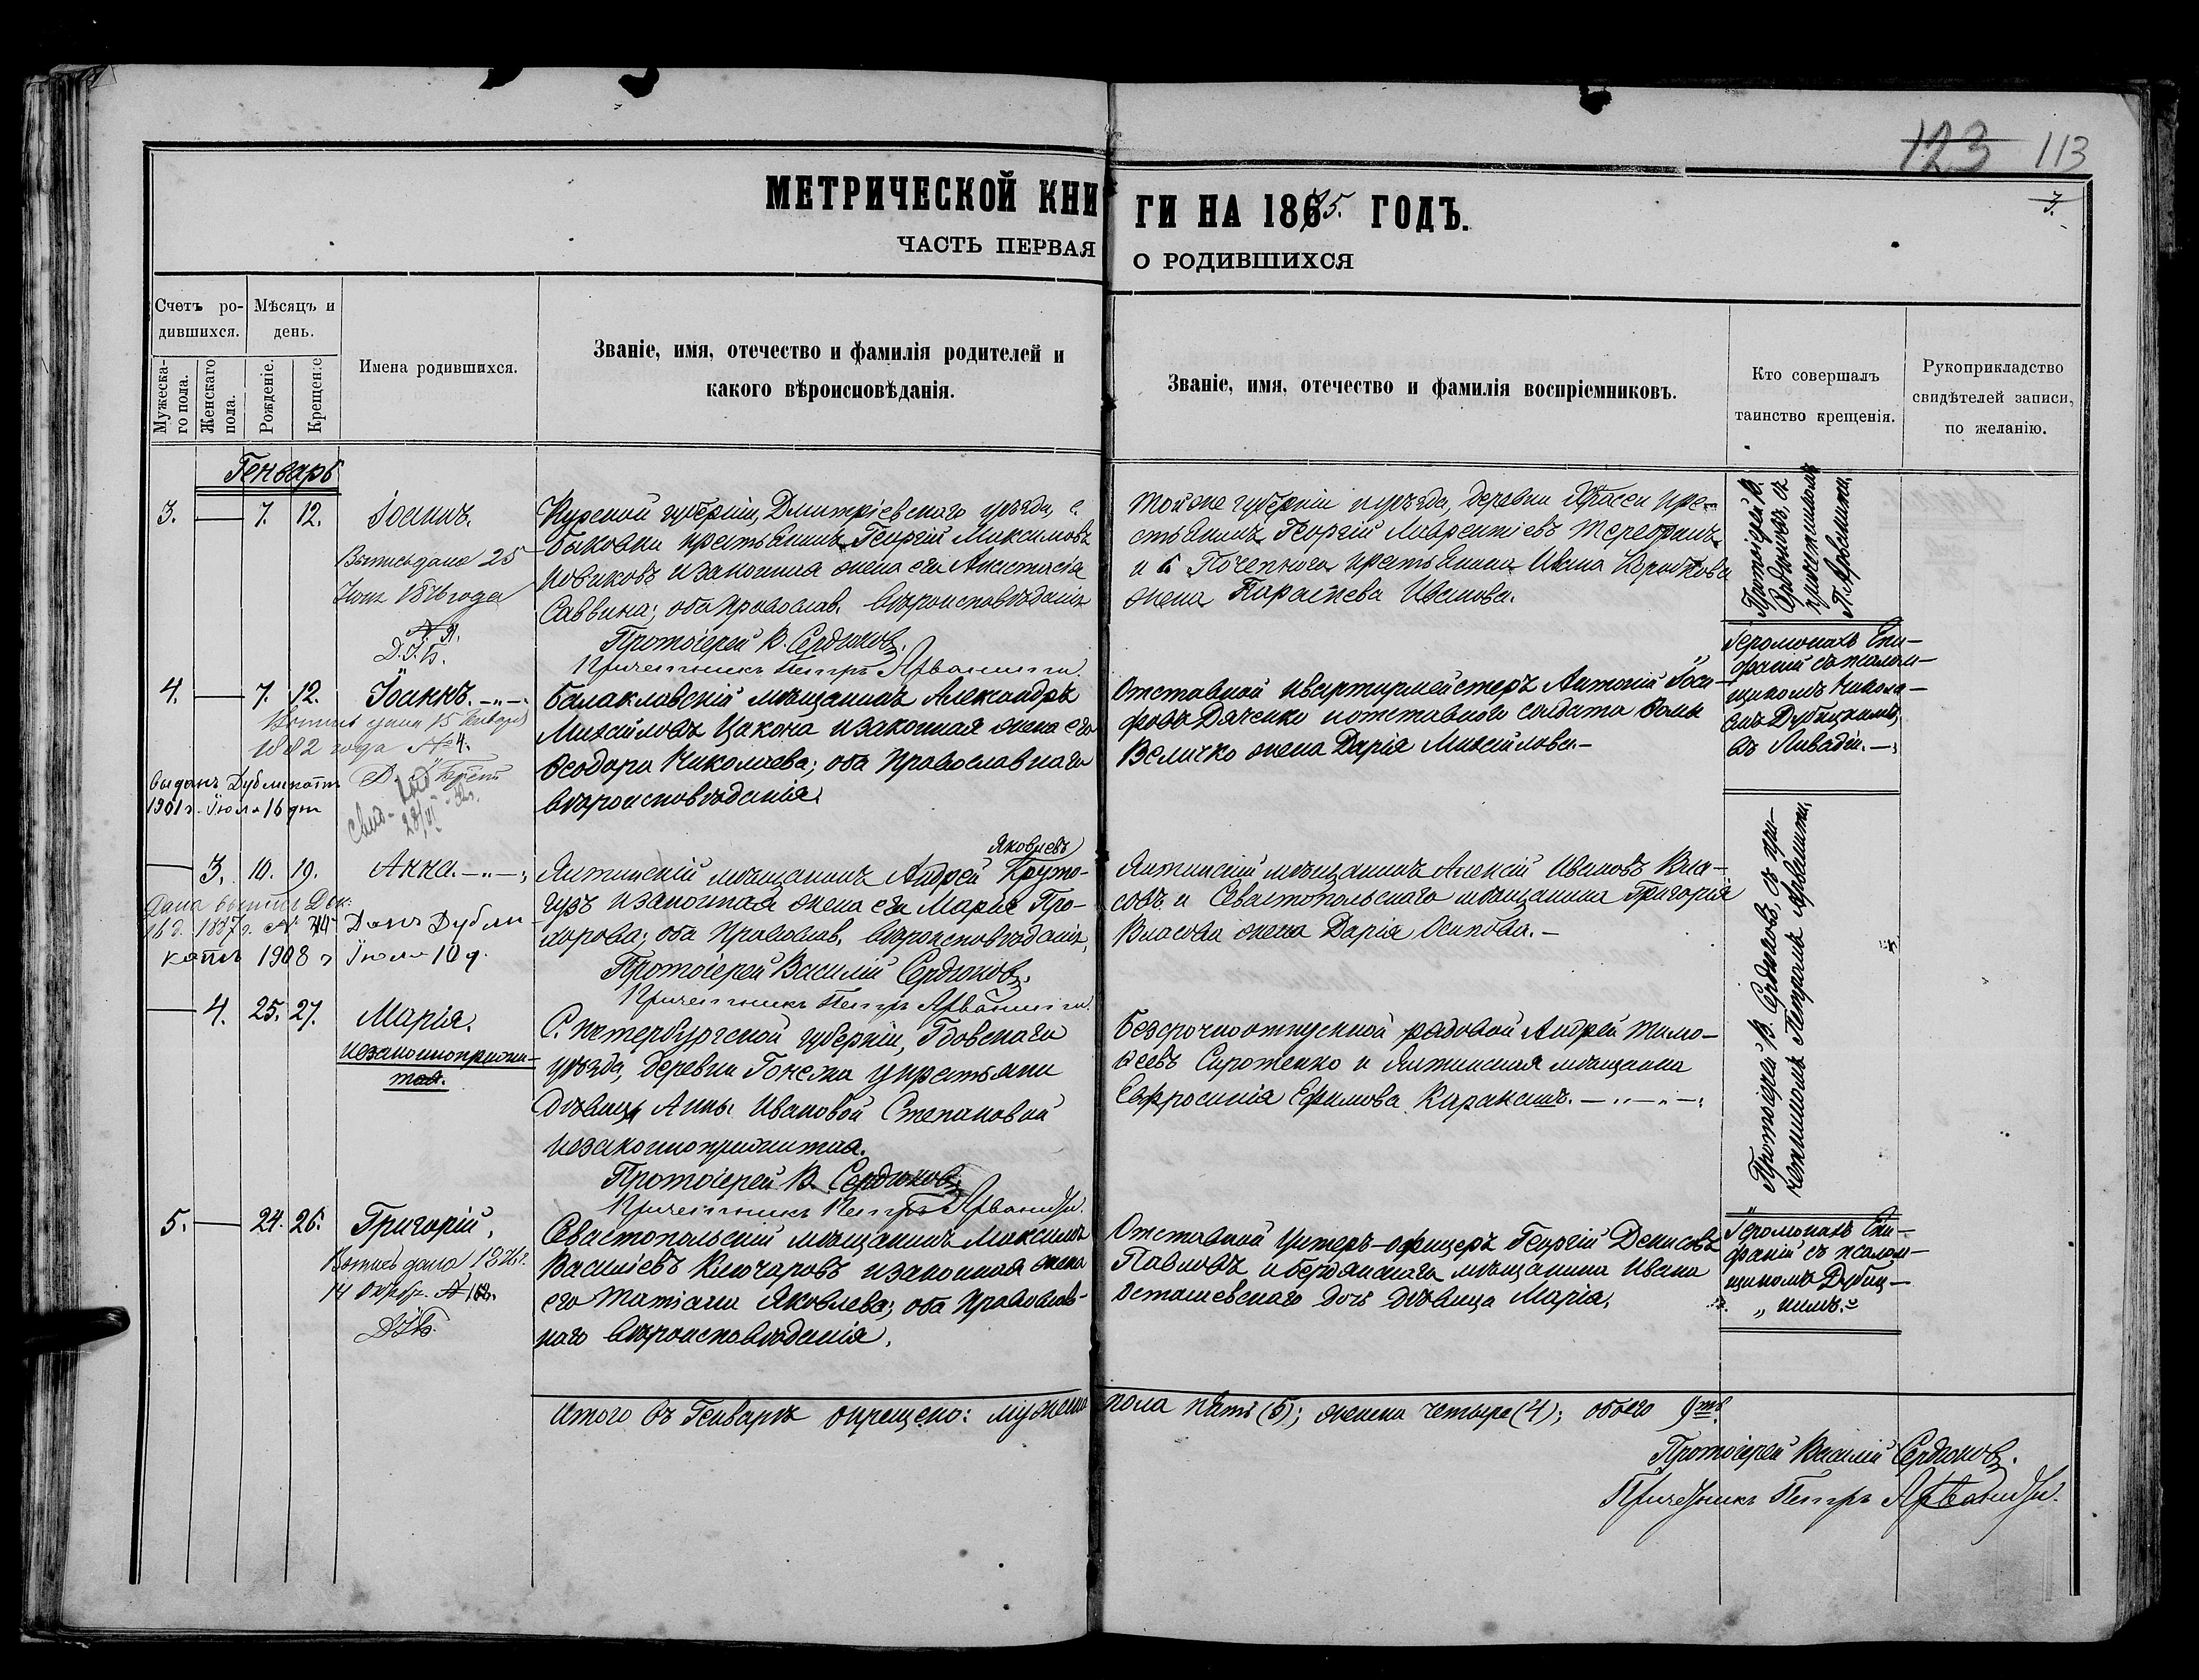 123 113
3.
МЕТРИЧЕСКОЙ КНИГИ НА 1875. ГОДЪ.
ЧАСТЬ ПЕРВАЯ О РОДИВШИХСЯ
Счетъ родившихся.
Мужескаго пола.
Женскаго пола.
Мѣсяцъ и день.
Рожденіе.
Крещеніе
Имена родившихся.
Званіе, имя, отечество и фамилія родителей и
какого вѣроисповѣданія.
Званіе, имя, отечество и фамилія воспріемниковъ.
Кто совершалъ
таинство крещенія.
Рукоприкладство
свидѣтелей записи,
по желанію.
Генварь
3. — 7. 12. Іоаннъ.
Выпись дана 25
года
Курской губерніи, Дмитріевскаго уѣзда, с.
Быковки крестьянинъ Георгій Максимовъ
Новиковъ и законная жена его Анастасія
Саввина; оба православ. вѣроисповѣданія
Протоіерей В. Сердюковъ.
Причетникъ Петръ Арванити.
той же губерніи и уѣзда, деревни кре-
стьянинъ Георгій Лаврентіевъ
и крестьянина Ивана
жена Параскева Иванова.
Протоіерей В.
Сердюковъ, съ
причетникомъ
П. Арванити.
4. — 7. 12. Іоаннъ. -„-
Выпись дана 15 Января
1882 года № 4.
Выданъ Дубликатъ
1901 г. Іюля 16 дня
Балаклавскій мѣщанинъ Александръ
Михайловъ Цакона и законная жена его
Ѳеодора Николаева; оба православнаго
вѣроисповѣданія.
Отставной квартирмейстеръ Антоній Іоси-
фовъ Дяченко и отставнаго солдата Ѳомы
Величко жена Дарія Михайлова.—
Іеромонахъ Епи-
фаній съ псалом-
щикомъ Никола-
емъ Дубицкимъ,
въ Ливадіи.—
— 3. 10. 19. Анна. -„-
Дана выпись Дек.
16 д. 1887 г. № 744
Данъ Дубли
катъ 1908 г Іюля 10 д.
Яковлевъ
Ялтинскій мѣщанинъ Андрей Круто-
гузъ и законная жена его Марія Про-
хорова; оба православ. вѣроисповѣданія.
Протоіерей Василій Сердюковъ.
Причетникъ Петръ Арванити.
Ялтинскій мѣщанинъ Алексій Ивановъ Вла-
совъ и Севастопольскаго мѣщанина Григорія
Власова жена Дарія Осипова.—
Протоіерей В. Сердюковъ, съ при-
четникомъ Петромъ Арванити.
— 4. 25. 27. Марія.
незаконноприжи-
тая.
С. Петербургской губерніи, Гдовскаго
уѣзда, деревни Гонежа у крестьянки
дѣвицы Анны Ивановой Степановой
незаконноприжитая.
Протоіерей В. Сердюковъ.
Причетникъ Петръ Арванити.
Безсрочноотпускной рядовой Андрей Тимо-
ѳеевъ Сиротенко и Ялтинская мѣщанка
Евфросинія Ефимова Каракашъ.—„—„—
5. — 24. 26. Григорій.
Выпись дана
14 Октбр.
Севастопольскій мѣщанинъ Максимъ
Василіевъ Ключаровъ и законная жена
его Татіана Яковлева; оба православ-
наго вѣроисповѣданія.
Отставной Унтеръ-офицеръ Георгій Денисовъ
Павловъ и бердянскаго мѣщанина Ивана
Осташевскаго дочь дѣвица Марія.
Іеромонахъ Епи-
фаній съ псалом-
щикомъ Дубиц-
„ кимъ.
Итого въ Генварѣ окрещено: мужеска пола пять (5); женска четыре (4); обоего 9ть
Протоіерей Василій Сердюковъ.
Причетникъ Петръ Арванити.